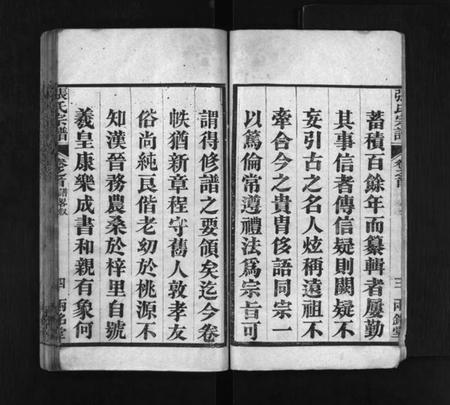 張氏宗譜
卷之首
三
蓄積百餘年而纂輯者屢勤
其事信者傳信疑則闕疑不
妄引古之名人炫稱遠祖不
牽合今之貴胄侈語同宗一
以篤倫常遵禮法爲宗旨可
謂得修譜之要領矣迄今卷
帙猶新章程守舊人敦孝友
俗尚純良偕老幼於桃源不
知漢晉務農桑於梓里自號
羲皇康樂成書和親有象何
張氏宗譜
卷之首 譜畧叙
四